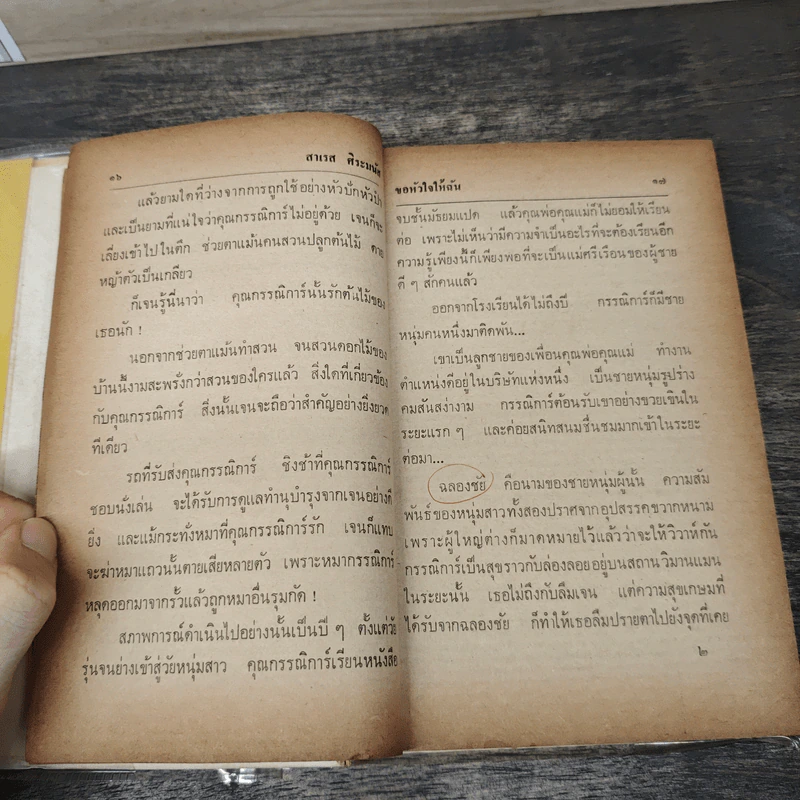 ๑๖
สาเรส ศิระมนัส
แล้วยามใดที่ว่างจากการถูกใช้อย่างหัวปักหัวปำ
และเป็นยามที่แน่ใจว่าคุณกรรณิการ์ไม่อยู่ด้วย เจนก็จะ
เลี่ยงเข้าไปในตึก ช่วยตาแม้นคนสวนปลูกต้นไม้ ดาย
หญ้าตัวเป็นเกลียว
ก็เจนรู้นี่นาว่า คุณกรรณิการ์นั้นรักต้นไม้ของ
เธอนัก !
นอกจากช่วยตาแม้นทำสวน จนสวนดอกไม้ของ
บ้านนี้งามสะพรั่งกว่าสวนของใครแล้ว สิ่งใดที่เกี่ยวข้อง
กับคุณกรรณิการ์ สิ่งนั้นเจนจะถือว่าสำคัญอย่างยิ่งยวด
ทีเดียว
รถที่รับส่งคุณกรรณิการ์ ชิงช้าที่คุณกรรณิการ์
ชอบนั่งเล่น จะได้รับการดูแลทำนุบำรุงจากเจนอย่างดี
ยิ่ง และแม้กระทั่งหมาที่คุณกรรณิการ์รัก เจนก็แทบ
จะฆ่าหมาแถวนั้นตายเสียหลายตัว เพราะหมากรรณิการ์
หลุดออกมาจากรั้วแล้วถูกหมาอื่นรุมกัด !
สภาพการณ์ดำเนินไปอย่างนั้นเป็นปี ๆ ตั้งแต่วัย
รุ่นจนย่างเข้าสู่วัยหนุ่มสาว คุณกรรณิการ์เรียนหนังสือ
ขอหัวใจให้ฉัน
๑๗
จบชั้นมัธยมแปด แล้วคุณพ่อคุณแม่ก็ไม่ยอมให้เรียน
ต่อ เพราะไม่เห็นว่ามีความจำเป็นอะไรที่จะต้องเรียนอีก
ความรู้เพียงนี้ก็เพียงพอที่จะเป็นแม่ศรีเรือนของผู้ชาย
ดี ๆ สักคนแล้ว
ออกจากโรงเรียนได้ไม่ถึงปี กรรณิการ์ก็มีชาย
หนุ่มคนหนึ่งมาติดพัน...
เขาเป็นลูกชายของเพื่อนคุณพ่อคุณแม่ ทำงาน
ตำแหน่งดีอยู่ในบริษัทแห่งหนึ่ง เป็นชายหนุ่มรูปร่าง
คมสันสง่างาม กรรณิการ์ต้อนรับเขาอย่างขวยเขินใน
ระยะแรก ๆ และค่อยสนิทสนมชื่นชมมากเข้าในระยะ
ต่อมา...
ฉลองชัย คือนามของชายหนุ่มผู้นั้น ความสัม
พันธ์ของหนุ่มสาวทั้งสองปราศจากอุปสรรคขวากหนาม
เพราะผู้ใหญ่ต่างก็มาดหมายไว้แล้วว่าจะให้วิวาห์กัน
กรรณิการ์เป็นสุขราวกับล่องลอยอยู่บนสถานวิมานแมน
ในระยะนั้น เธอไม่ถึงกับลืมเจน แต่ความสุขเกษมที่
ได้รับจากฉลองชัย ก็ทำให้เธอลืมปรายตาไปยังจุดที่เคย
๒